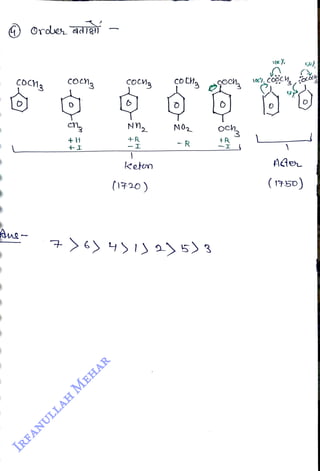 ④ Order बताओ —
100% 100%
COCH₃ COCH₃ COCH₃ COCH₃ COCH₃ COOCH₃ OCOCH₃
CH₃ NH₂ NO₂ OCH₃
+H +R -R +R
+I -I -I
Keton Aster
(1720) (1750)
Ans -
7 > 6 > 4 > 1 > 2 > 5 > 3
IRFANULLAH MEHAR